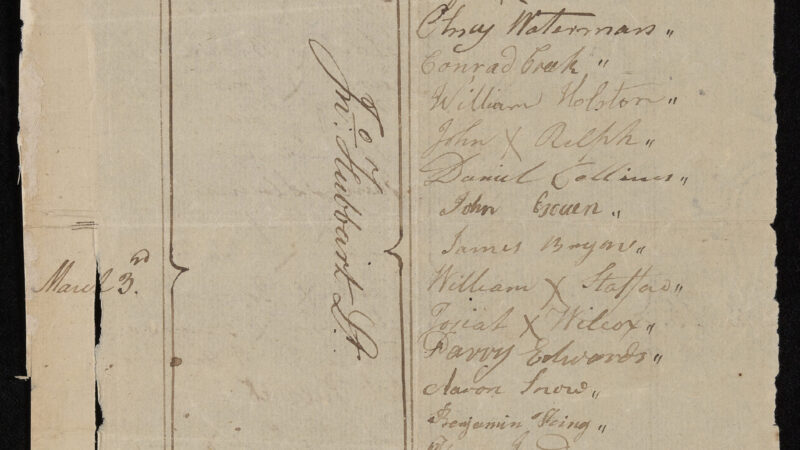 March 3rd.
For
Jno. Hubbart Lt
Waterman "
Conrad "
William Holston "
John X Relph "
Daniel Collines "
John "
James Bryan "
William X Staffao "
Josiat X Wilcox "
Parry Edwards "
Aaron Snow "
Benjamin "